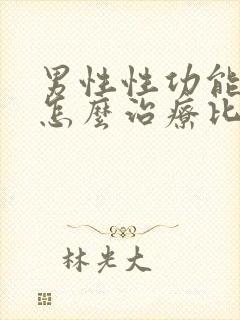 男性性功能
怎麼治療比
林光大